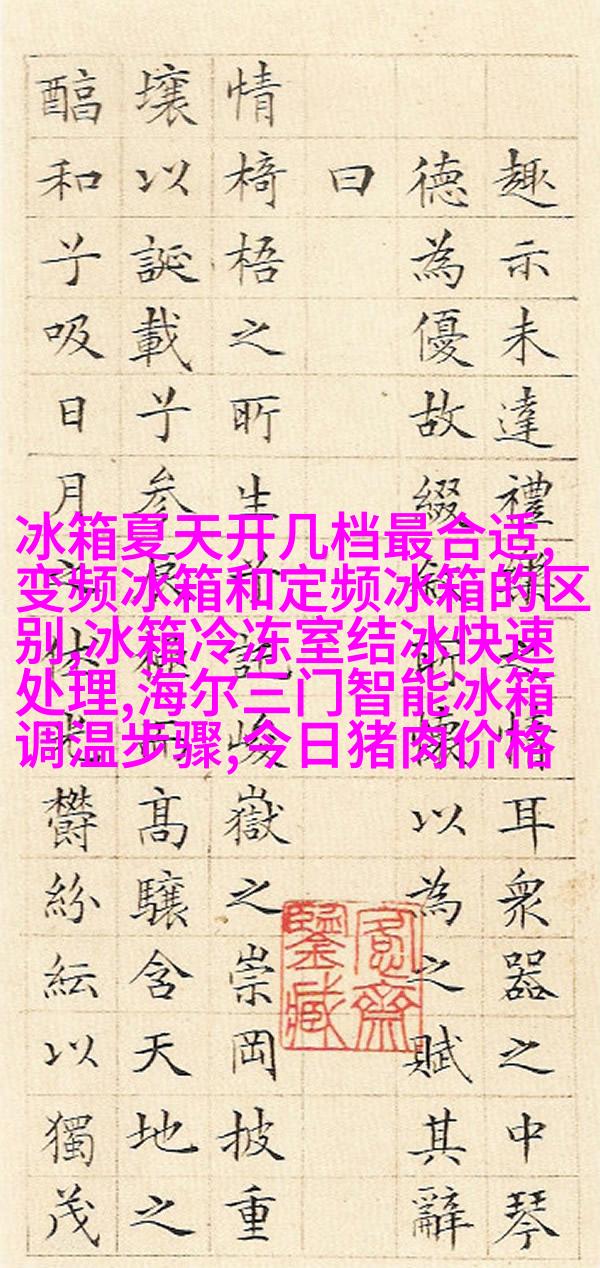 趣示未達禮樂之情耳衆器之中琴
德為優故綴叙所懷以為之賦其辭
曰
情椅梧之所生兮託峻嶽之崇岡披重
壤以誕載兮参辰極而高驤含天地之
醕和兮吸日月之休光鬱紛紜以獨茂
冰箱夏天开几档最合适,
变频冰箱和定频冰箱的区
别,冰箱冷冻室结冰快速
处理,海尔三门智能冰箱
调温步骤,今日猪肉价格
愙齋
鑒藏